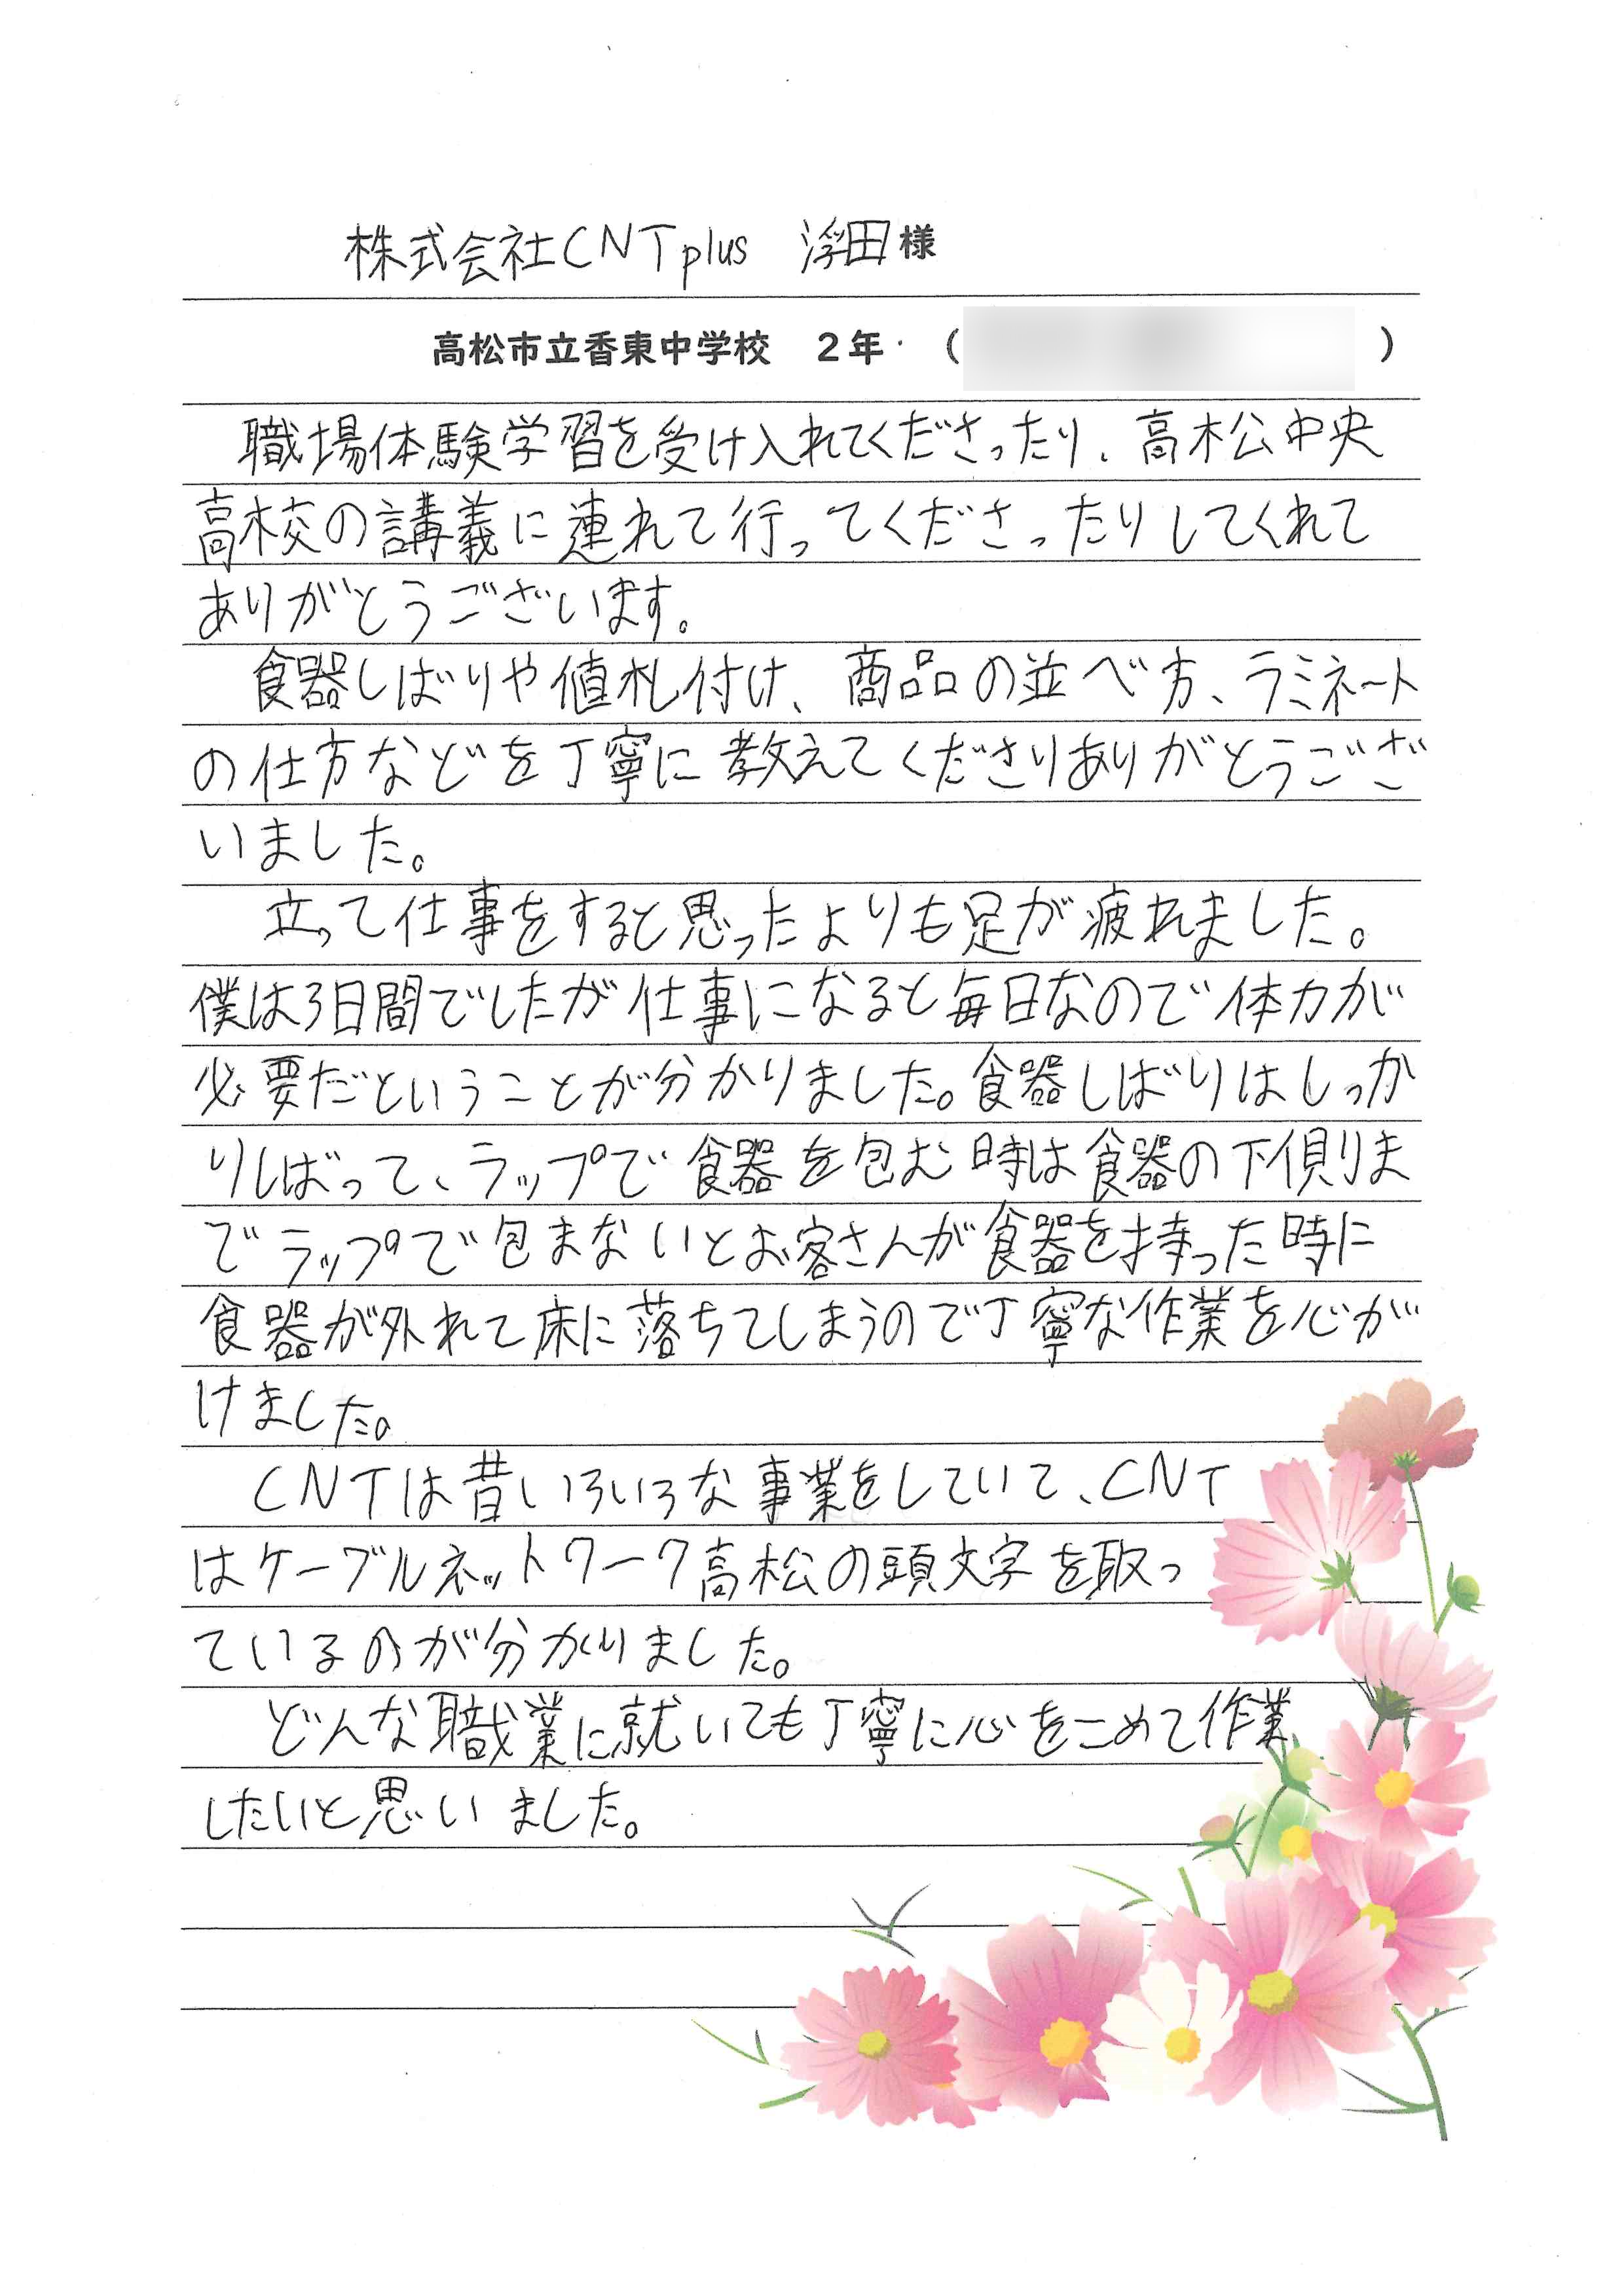 株式会社CNTplus 浮田様
高松市立香東中学校 2年 ( )
職場体験学習を受け入れてくださったり、高松中央
高校の講義に連れて行ってくださったりしてくれて
ありがとうございます。
食器しばりや値札付け、商品の並べ方、ラミネート
の仕方などを丁寧に教えてくださりありがとうござ
いました。
立って仕事をすると思ったよりも足が疲れました。
僕は3日間でしたが仕事になると毎日なので体力が
必要だということが分かりました。食器しばりはしっか
りしばって、ラップで食器を包む時は食器の下側りま
でラップで包まないとお客さんが食器を持った時に
食器が外れて床に落ちてしまうので丁寧な作業を心が
けました。
CNTは昔いろいろな事業をしていて、CNT
はケーブルネットワーク高松の頭文字を取っ
ているのが分かりました。
どんな職業に就いても丁寧に心をこめて作業
したいと思いました。